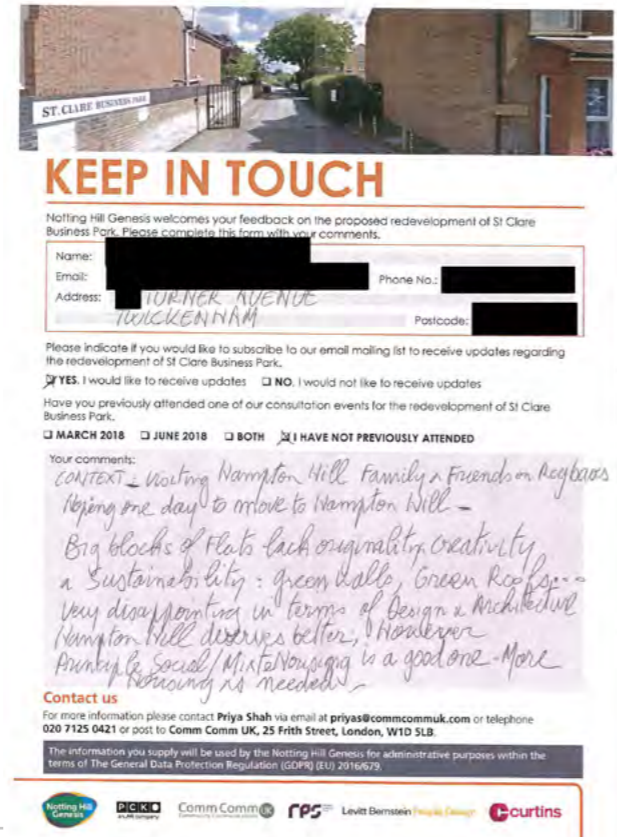 ST. CLARE BUSINESS PARK
KEEP IN TOUCH
Notting Hill Genesis welcomes your feedback on the proposed redevelopment of St Clare
Business Park. Please complete this form with your comments.
Name:
Email: Phone No.:
Address: TURNER AVENUE
TWICKENHAM Postcode:
Please indicate if you would like to subscribe to our email mailing list to receive updates regarding
the redevelopment of St Clare Business Park.
YES, I would like to receive updates NO, I would not like to receive updates
Have you previously attended one of our consultation events for the redevelopment of St Clare
Business Park.
MARCH 2018 JUNE 2018 BOTH I HAVE NOT PREVIOUSLY ATTENDED
Your comments:
CONTEXT - Visiting Hampton Hill Family & Friends on
Hoping one day to move to Hampton Hill -
Big blocks of Flats lack originality, creativity
& Sustainability : green Walls, Green Roofs...
Very disappointing in terms of Design & Architecture
Hampton Hill deserves better, However
Principle Social/ Housing is a good one - More
Housing is needed -
Contact us
For more information please contact Priya Shah via email at priyas@commcommuk.com or telephone
020 7125 0421 or post to Comm Comm UK, 25 Frith Street, London, W1D 5LB.
The information you supply will be used by the Notting Hill Genesis for administrative purposes within the
terms of The General Data Protection Regulation (GDPR) (EU) 2016/679.
Notting Hill
Genesis
PCKO
Comm Comm UK
rps
Levitt Bernstein People.Design
curtins